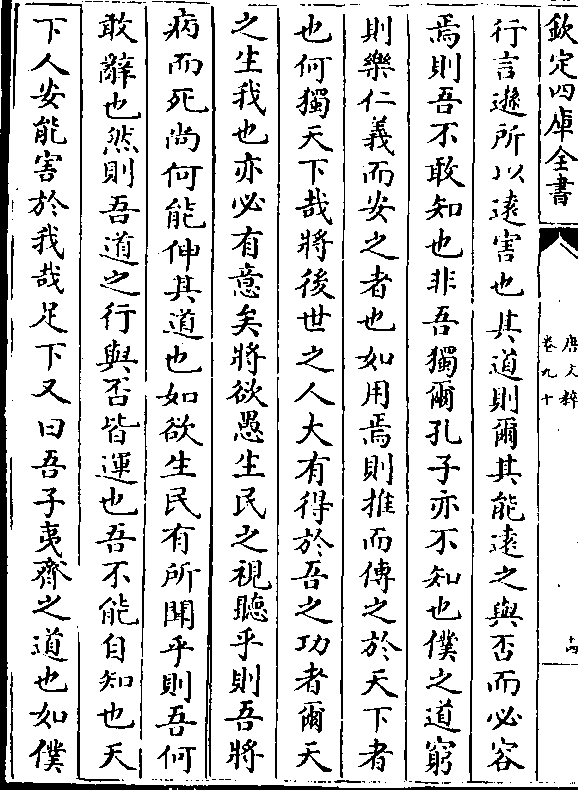 欽定四庫全書
唐文粹
卷九十
十四
行言遜所以遠害也其道則爾其能遠之與否而必容
焉則吾不敢知也非吾獨爾孔子亦不知也僕之道窮
則樂仁義而安之者也如用焉則推而傳之於天下者
也何獨天下哉將後世之人大有得於吾之功者爾天
之生我也亦必有意矣將欲愚生民之視聽乎則吾將
病而死尚何能伸其道也如欲生民有所聞乎則吾何
敢辭也然則吾道之行與否皆運也吾不能自知也天
下人安能害於我哉足下又曰吾子夷齊之道也如僕